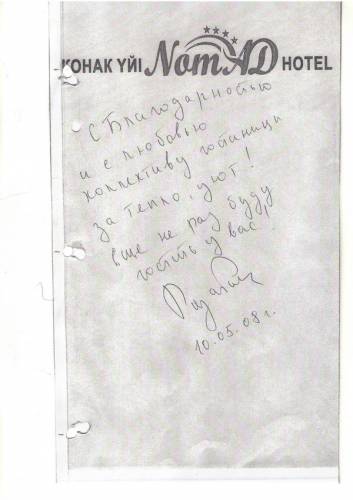 ҚОНАҚ ҮЙІ NomAD HOTEL
С Благодарностью
и с любовью
коллективу гостиницы
за тепло, уют!
еще не раз буду
гостить у вас!
10.05.08 г.